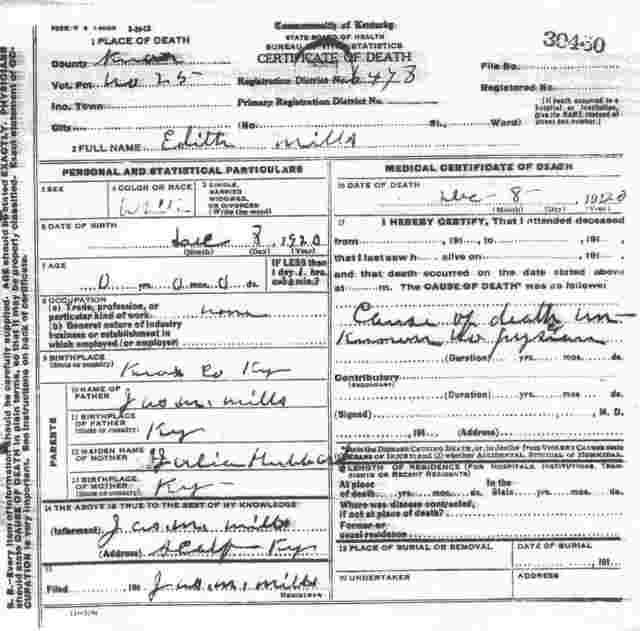 Commonwealth of Kentucky
STATE BOARD OF HEALTH
BUREAU OF VITAL STATISTICS
CERTIFICATE OF DEATH
30450
File No.
1 PLACE OF DEATH
County Knox
Vot. Pct. No 25
Registration District No. 6473
Registered No.
Inc. Town
Primary Registration District No.
[If death occurred in a
hospital or institution,
give its NAME instead of
street and number.]
City (No. St., Ward)
2 FULL NAME Edith Mills
PERSONAL AND STATISTICAL PARTICULARS
3 SEX
4 COLOR OR RACE
5 SINGLE,
MARRIED
WIDOWED,
OR DIVORCED
(Write the word)
6 DATE OF BIRTH
Dec 8 1920
(Month) (Day) (Year)
7 AGE
0 yrs. 0 mos. 0 ds.
IF LESS than
1 day hrs.
or min?
8 OCCUPATION
(a) Trade, profession, or
particular kind of work none
(b) General nature of industry
business or establishment in
which employed (or employer)
9 BIRTHPLACE
(State or country) Knox Co Ky
PARENTS
10 NAME OF
FATHER Jas. m. mills
11 BIRTHPLACE
OF FATHER
(State or country) Ky
12 MAIDEN NAME
OF MOTHER
13 BIRTHPLACE
OF MOTHER
(State or country) Ky
14 THE ABOVE IS TRUE TO THE BEST OF MY KNOWLEDGE
(Informant) Jas. m. mills
(Address) Scalf Ky
15
Filed , 191 Jas. m. mills
REGISTRAR
MEDICAL CERTIFICATE OF DEATH
16 DATE OF DEATH
Dec 8 1920
(Month) (Day) (Year)
17 I HEREBY CERTIFY, That I attended deceased
from , 191 , to , 191 ,
that I last saw h alive on , 191 ,
and that death occurred on the date stated above
at m. The CAUSE OF DEATH* was as follows:
Cause of death un-
known no pysician
(Duration) yrs. mos. ds.
Contributory
(SECONDARY)
(Duration) yrs. mos. ds.
(Signed) , M. D.
, 191 (Address)
*State the DISEASE CAUSING DEATH, or, in deaths from VIOLENT CAUSES state
(1) MEANS OF INJURY; and (2) whether ACCIDENTAL, SUICIDAL or HOMICIDAL.
18 LENGTH OF RESIDENCE (FOR HOSPITALS, INSTITUTIONS, TRANSIENTS
OR RECENT RESIDENTS)
At place In the
of death yrs. mos. ds. State yrs. mos. ds.
Where was disease contracted,
if not at place of death?
Former or
usual residence
19 PLACE OF BURIAL OR REMOVAL
DATE OF BURIAL
, 191
20 UNDERTAKER
ADDRESS
N. B.—Every item of information should be carefully supplied. AGE should be stated EXACTLY. PHYSICIANS
should state CAUSE OF DEATH in plain terms, so that it may be properly classified. Exact statement of OCCUPATION
is very important. See instructions on back of certificate.